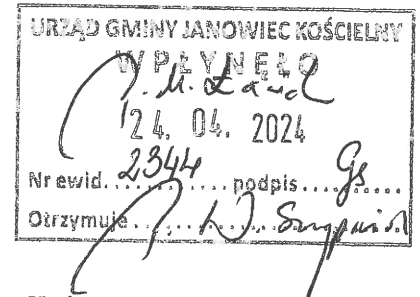 URZĄD GMINY JANOWIEC KOŚCIELNY
WPŁYNĘŁO
24. 04. 2024
Nr ewid. 2344 podpis Gs
Otrzymuje